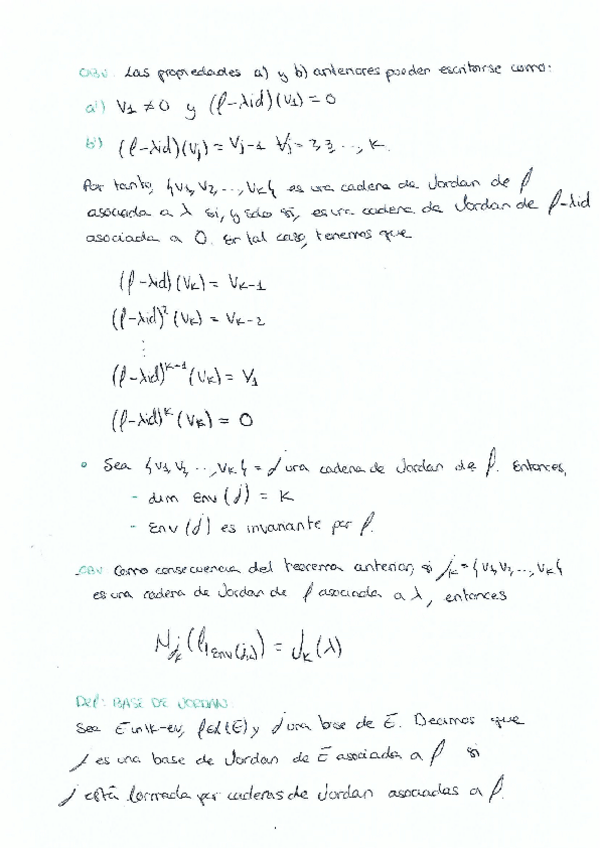 OBV: Las propiedades a) y b) anteriores pueden escribirse como:
a') v₁ ≠ 0 y (f-λid)(v₁) = 0
b') (f-λid)(vⱼ) = vⱼ₋₁ ∀j = 2, 3, ..., k.
Por tanto, {v₁, v₂, ..., vₖ} es una cadena de Jordan de f
asociada a λ si, y sólo si, es una cadena de Jordan de f-λid
asociada a 0. En tal caso, tenemos que
(f-λid)(vₖ) = vₖ₋₁
(f-λid)²(vₖ) = vₖ₋₂
⋮
(f-λid)ᵏ⁻¹(vₖ) = v₁
(f-λid)ᵏ(vₖ) = 0
• Sea {v₁, v₂, ..., vₖ} = J una cadena de Jordan de f. Entonces,
- dim Env (J) = k
- Env (J) es invariante por f.
OBV: Como consecuencia del teorema anterior, si Jₖ = {v₁, v₂, ..., vₖ}
es una cadena de Jordan de f asociada a λ, entonces
M_Jₖ (f|Env(Jₖ)) = Jₖ(λ)
Def: BASE DE JORDAN.
Sea E un K-ev, f∈L(E) y J una base de E. Decimos que
J es una base de Jordan de E asociada a f si
J está formada por cadenas de Jordan asociadas a f.